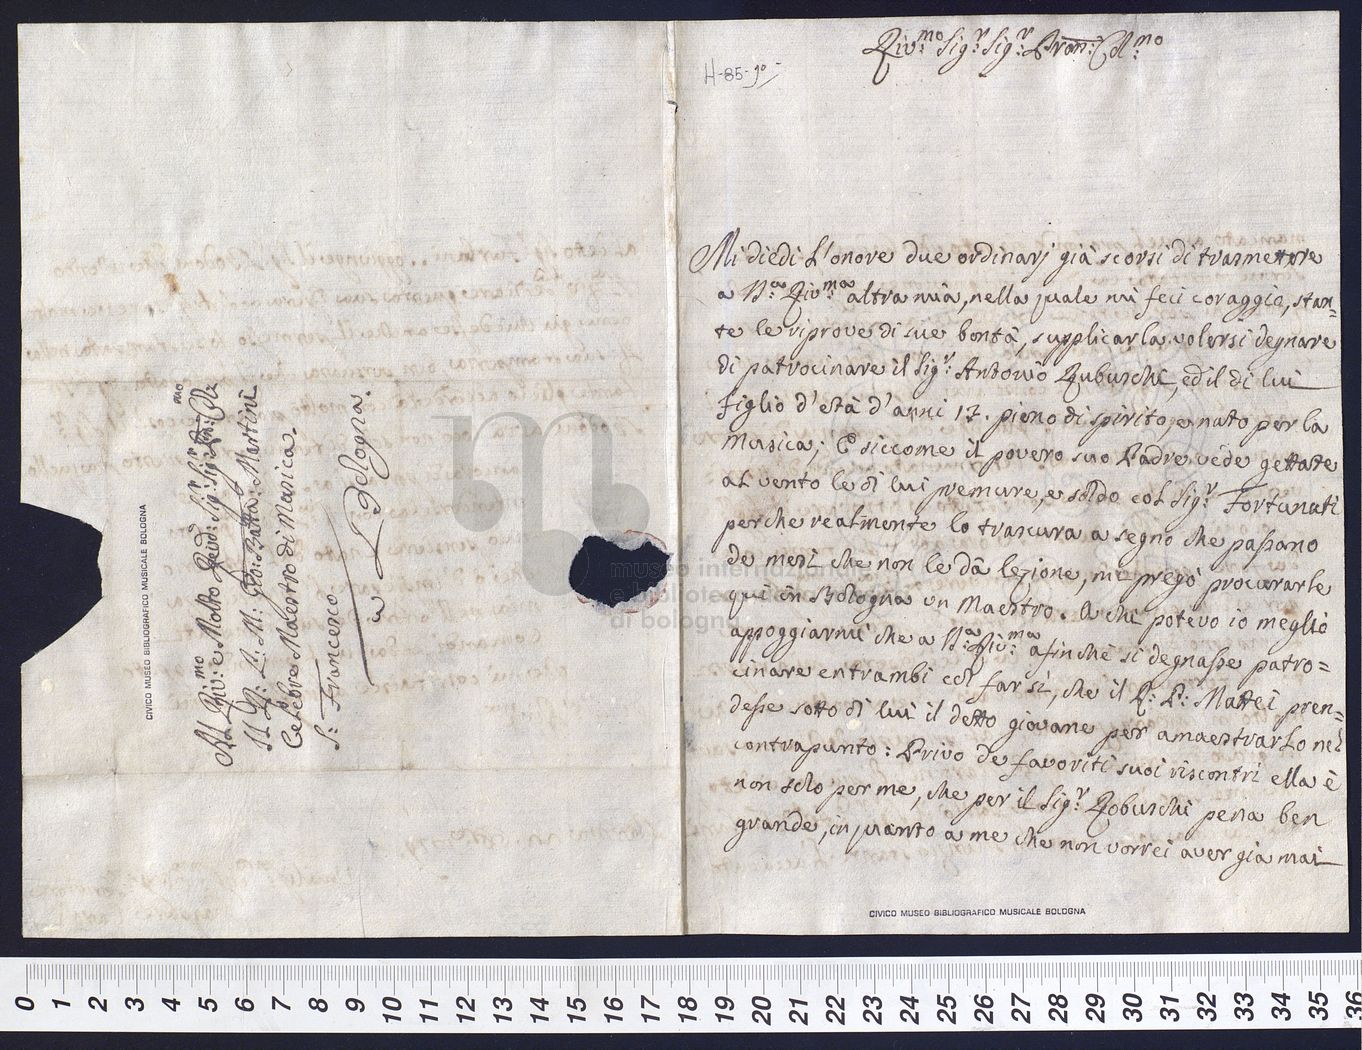 Riv.mo Sig.r Sig.r Pron: Col.mo
H-85-90
Mi diedi L'onore due ordinarj già scorsi di trasmettere
a V.a Riv.ma altra mia, nella quale mi feci coraggio, stan=
te le riprove di sue bontà, supplicarla volersi degnare
di patrocinare il Sig.r Antonio Ruburchi, ed il di lui
figlio d'età d'anni 17. pieno di spirito, e nato per la
Musica; E siccome il povero suo Padre vede gettate
al vento le di lui premure, e soldo col Sig.r Fortunati
perche realmente lo trascura a segno che passano
de mesi che non le dà lezione, mi pregò procurarle
quì in Bologna un Maestro. A chi potevo io meglio
appoggiarmi che a V.a Riv.ma afinchè si degnasse patro=
cinare entrambi col far sì, che il R: P: Mattei pren=
desse sotto di lui il detto giovane per amaestrarlo nel
contrapunto: Privo de favoriti suoi riscontri ella è
non solo per me, che per il Sig.r Roburchi pena ben
grande, in quanto a me che non vorrei aver già mai
Al Riv.mo e Molto Revd: Sig.r Sig.r Pron: Col.mo
Il R: P: M: Gio: Batta: Martini
Celebre Maestro di Musica.
S: Francesco
Bologna.
CIVICO MUSEO BIBLIOGRAFICO MUSICALE BOLOGNA
CIVICO MUSEO BIBLIOGRAFICO MUSICALE BOLOGNA
museo internazionale
e biblioteca della
di bologna
0 1 2 3 4 5 6 7 8 9 10 11 12 13 14 15 16 17 18 19 20 21 22 23 24 25 26 27 28 29 30 31 32 33 34 35 36